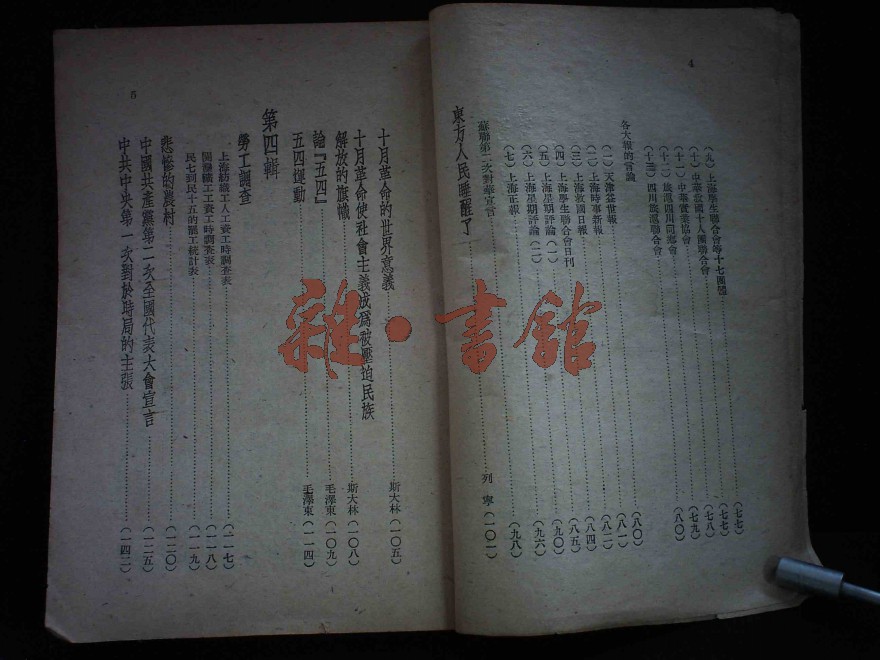 4
(九)上海學生聯合會等十七團體……(七七)
(十)中華救國十人團聯合會……(七七)
(十一)中華實業協會……(七八)
(十二)旅滬四川同鄉會……(七九)
(十三)四川旅滬聯合會……(八〇)
各大報的言論
(一)天津益世報……(八〇)
(二)上海時事新報……(八一)
(三)上海救國日報……(八二)
(四)上海學生聯合會日刊……(八四)
(五)上海星期評論(一)……(八五)
(六)上海星期評論(二)……(九〇)
(七)上海正報……(九六)
蘇聯第一次對華宣言……(九八)
東方人民睡醒了……列寧(一〇一)
5
十月革命的世界意義……斯大林(一〇五)
十月革命使社會主義成爲被壓迫民族
解放的旗幟……斯大林(一〇八)
論『五四』……毛澤東(一〇九)
五四運動……毛澤東(一一四)
第四輯
勞工調查
上海紡織工人工資工時調查表……(一一七)
開灤礦工工資工時調查表……(一一八)
民七到民十五的罷工統計表……(一一九)
悲慘的農村……(一二〇)
中國共產黨第二次全國代表大會宣言……(一二五)
中共中央第一次對於時局的主張……(一四二)
雜·書館